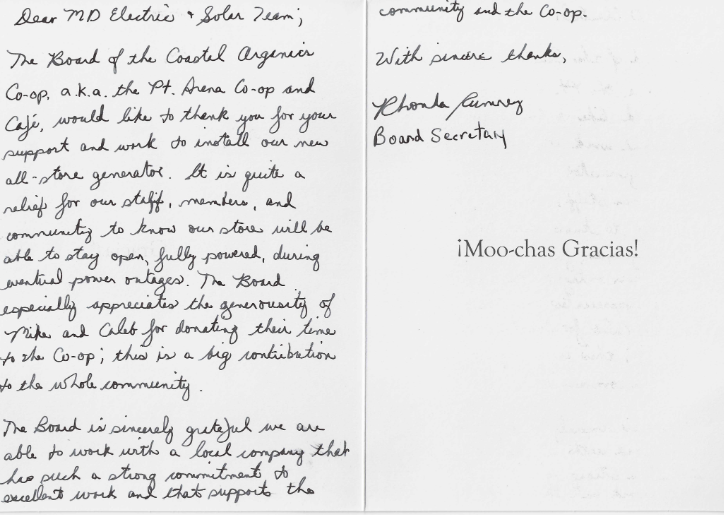 Dear MD Electric & Solar Team;
The Board of the Coastal Organics
Co-op, a.k.a. the Pt. Arena Co-op and
Café, would like to thank you for your
support and work to install our new
all-store generator. It is quite a
relief for our staff, members, and
community to know our store will be
able to stay open, fully powered, during
eventual power outages. The Board
especially appreciates the generousity of
Mike and Caleb for donating their time
to the Co-op; this is a big contribution
to the whole community.
The Board is sincerely grateful we are
able to work with a local company that
has such a strong commitment to
excellent work and that supports the
community and the Co-op.
With sincere thanks,
Rhonda
Board Secretary
¡Moo-chas Gracias!